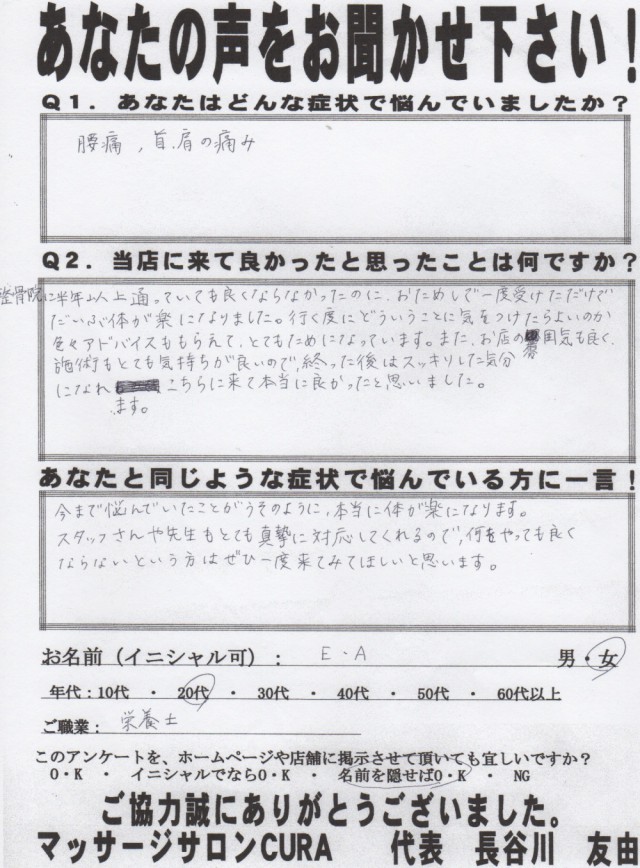 あなたの声をお聞かせ下さい！
Q1．あなたはどんな症状で悩んでいましたか？
腰痛，首、肩の痛み
Q2．当店に来て良かったと思ったことは何ですか？
整骨院に半年以上通っていても良くならなかったのに、おためしで一度受けただけで
だいぶ体が楽になりました。行く度にどういうことに気をつけたらよいのか
色々アドバイスももらえて、とてもためになっています。また、お店の雰囲気も良く、
施術もとても気持ちが良いので、終った後はスッキリした気分
になれ こちらに来て本当に良かったと思いました。
ます。
あなたと同じような症状で悩んでいる方に一言！
今まで悩んでいたことがうそのように、本当に体が楽になります。
スタッフさんや先生もとても真摯に対応してくれるので、何をやっても良く
ならないという方はぜひ一度来てみてほしいと思います。
お名前（イニシャル可）： E・A 男・女
年代：10代 ・ 20代 ・ 30代 ・ 40代 ・ 50代 ・ 60代以上
ご職業： 栄養士
このアンケートを、ホームページや店舗に掲示させて頂いても宜しいですか？
O・K ・ イニシャルでならO・K ・ 名前を隠せばO・K ・ NG
ご協力誠にありがとうございました。
マッサージサロンCURA 代表 長谷川 友由